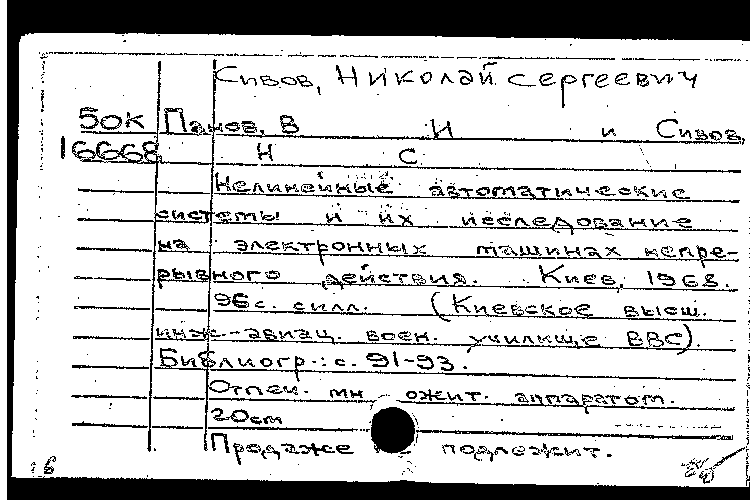 Сивов, Николай Сергеевич
50К Панов, В И и Сивов,
16668 Н С
Нелинейные автоматические
системы и их исследование
на электронных машинах непре-
рывного действия. Киев, 1968.
96 с. с илл. (Киевское высш.
инж.-авиац. воен. училище ВВС).
Библиогр.: с. 91-93.
Отпеч. множит. аппаратом.
20см
Продаже подлежит.
6